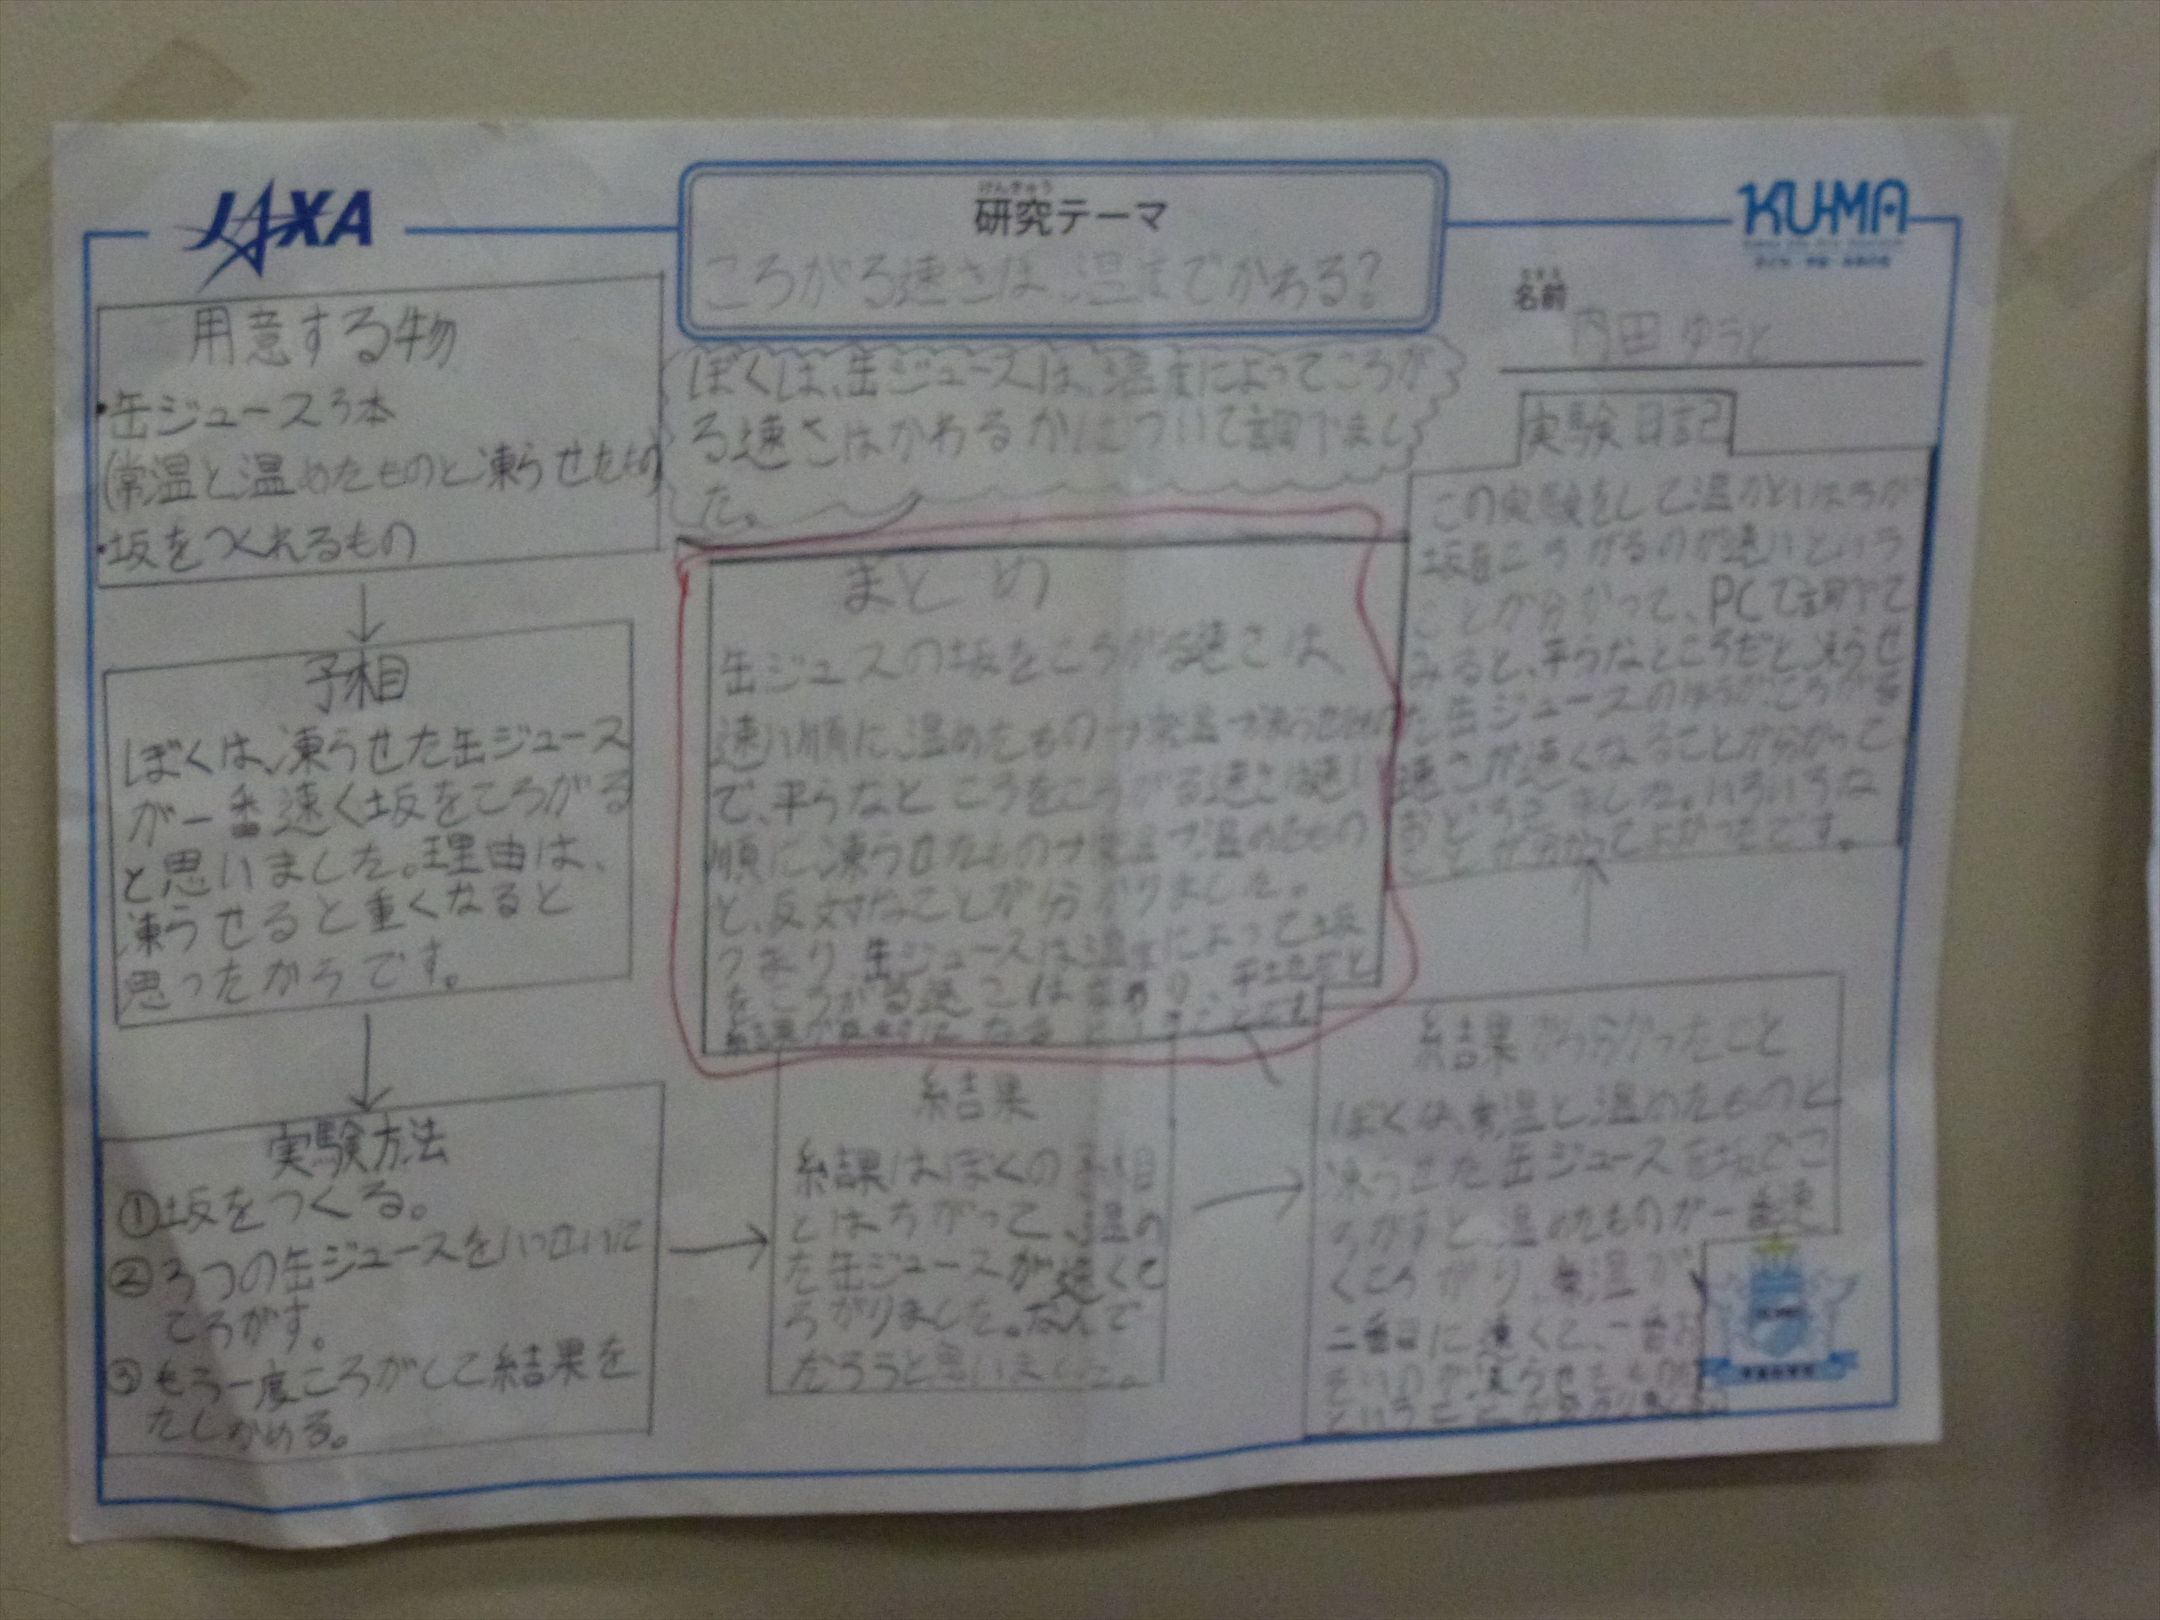 JAXA
けんきゅう
研究テーマ
ころがる速さは、温までかわる?
KUMA
名前
内田 ゆうと
用意する物
・缶ジュース3本
(常温と温めたものと凍らせたもの
・坂をつくれるもの
ぼくは、缶ジュースは、温度によってころが
る速さはかわるかについて調べまし
た。
予想
ぼくは、凍らせた缶ジュース
が一番速く坂をころがる
と思いました。理由は、
凍らせると重くなると
思ったからです。
実験方法
①坂をつくる。
②3つの缶ジュースを
ころがす。
③もう一度ころがして結果を
たしかめる。
結果
結果はぼくの予想
とはちがって、温め
た缶ジュースが速くこ
ろがりました。なんで
だろうと思いました。
結果から分かったこと
ぼくは、常温と、温めたものと
凍らせた缶ジュースを坂でこ
ろがすと、温めたものが一番速
くころがり、常温が
二番目に速くて、一番お
そいのが、凍らせたもの
ということが分かりました
まとめ
缶ジュースの坂をころがる速さは、
速い順に、温めたもの→常温→凍らせたもの
で、平らなところをころがる速さは速い
順に、凍らせたもの→常温→温めたもの
と、反対なことが分かりました。
つまり、缶ジュースは温度によって坂
をころがる速さはかわり、平地だと
結果が反対になるということです
実験日記
この実験をして温かいほうが
坂をころがるのが速いという
ことが分かって、PCで調べて
みると、平らなところだと、凍らせ
た缶ジュースのほうがころがる
速さが速くなることが分かって
おどろきました。いろいろな
ことが分かってよかったです。